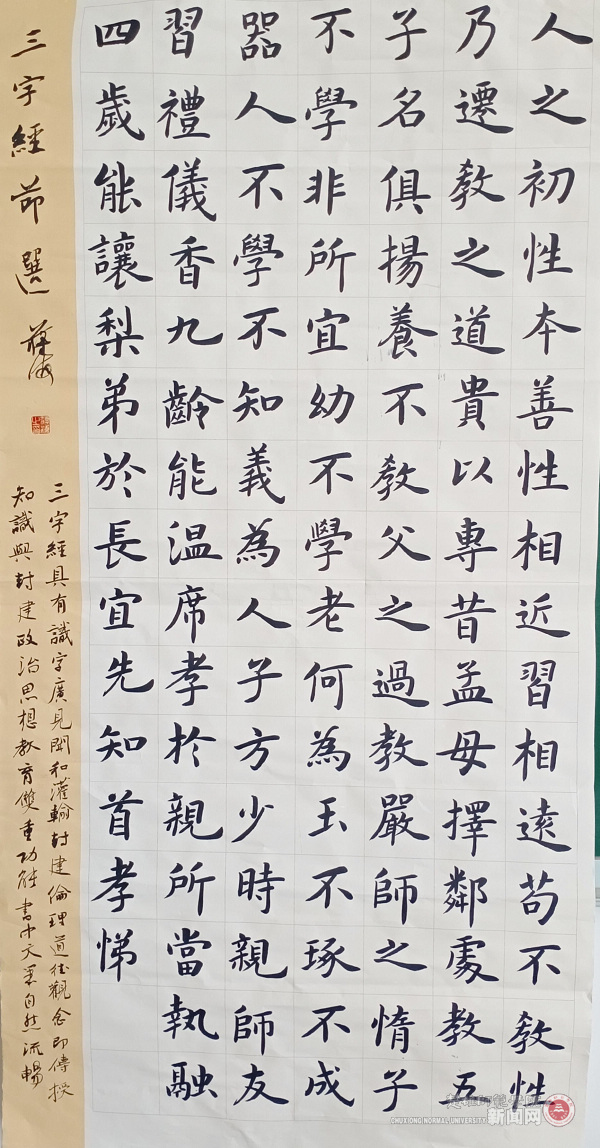 人之初性本善性相近習相遠苟不教性
乃遷教之道貴以專昔孟母擇鄰處教五
子名俱揚養不教父之過教嚴師之惰子
不學非所宜幼不學老何為玉不琢不成
器人不學不知義為人子方少時親師友
習禮儀香九齡能温席孝於親所當執融
四歲能讓梨弟於長宜先知首孝悌
三字經節選
三字經具有識字廣見聞和灌輸封建倫理道德觀念即傳授
知識與封建政治思想教育雙重功能書中文筆自然流暢
CHUXIONG NORMAL UNIVERSITY
新闻网